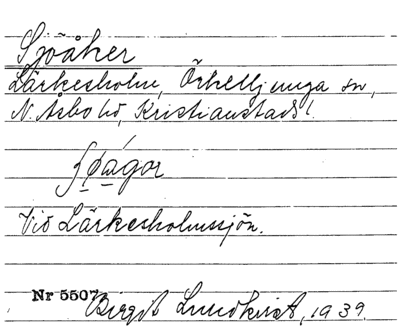 Sjöåker
Lärkesholm, Örkelljunga sn,
N. Åsbo hd, Kristianstads l.
Vid Lärkesholmssjön.
Nr 5507 Birgit Lundkvist, 1939.